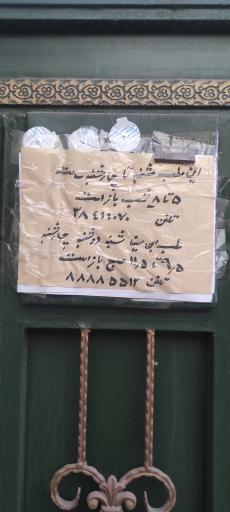 این مطب شنبه تا چهارشنبه ساعت
۵ تا ۸ شب باز است
تلفن ۲۸۴۱۱۰۷۰
مطب ایران سینا شنبه دوشنبه چهارشنبه
۹،۵ تا ۱۱،۵ صبح باز است
تلفن ۸۸۸۸۵۵۱۲